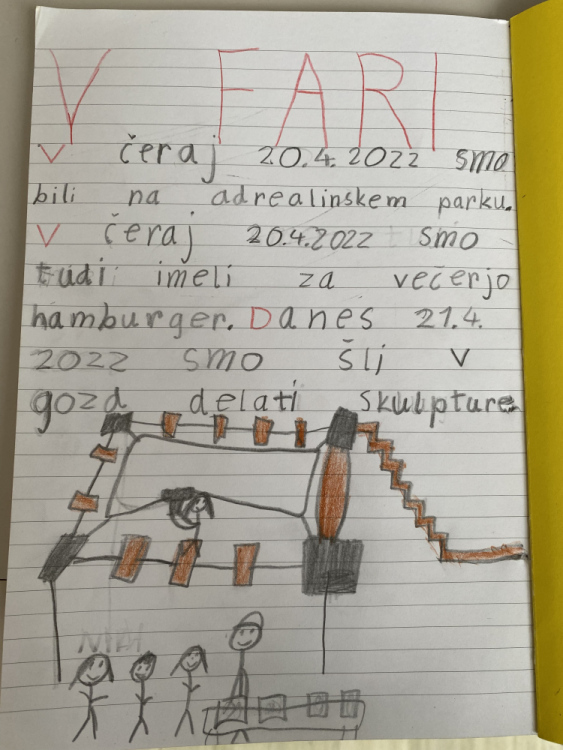 V FARI
V čeraj 20.4.2022 smo
bili na adrealinskem parku.
V čeraj 20.4.2022 smo
tudi imeli za večerjo
hamburger. Danes 21.4.
2022 smo šli v
gozd delati skulpture.